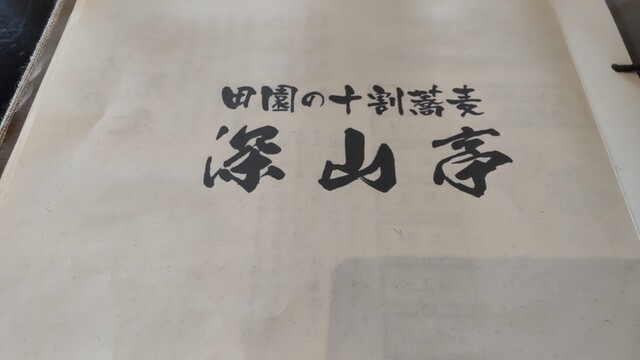 田園の十割蕎麦
深山亭